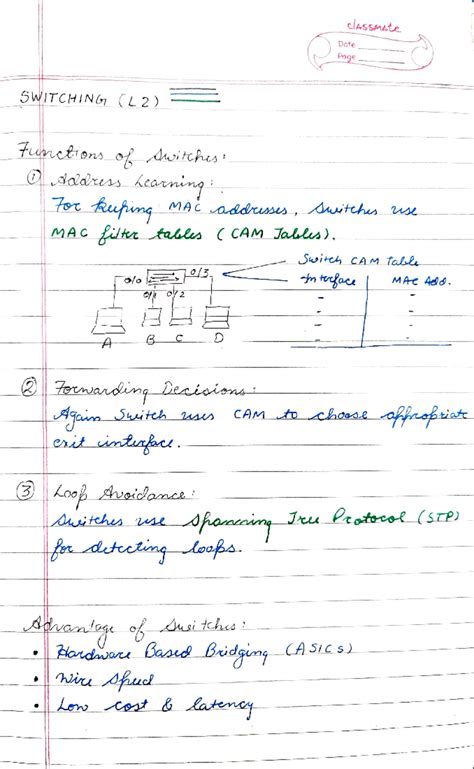 classmate
Date
Page
SWITCHING (L2)
Functions of Switches:
① Address Learning:
For keeping MAC addresses, Switches use
MAC filter tables (CAM Tables).
Switch CAM table
Interface MAC Add.
0/0 0/1 0/2 0/3
A B C D
② Forwarding Decisions:
Again Switch uses CAM to choose appropriate
exit interface.
③ Loop Avoidance:
Switches use Spanning Tree Protocol (STP)
for detecting loops.
Advantage of Switches:
• Hardware Based Bridging (ASICs)
• Wire Speed
• Low cost & latency